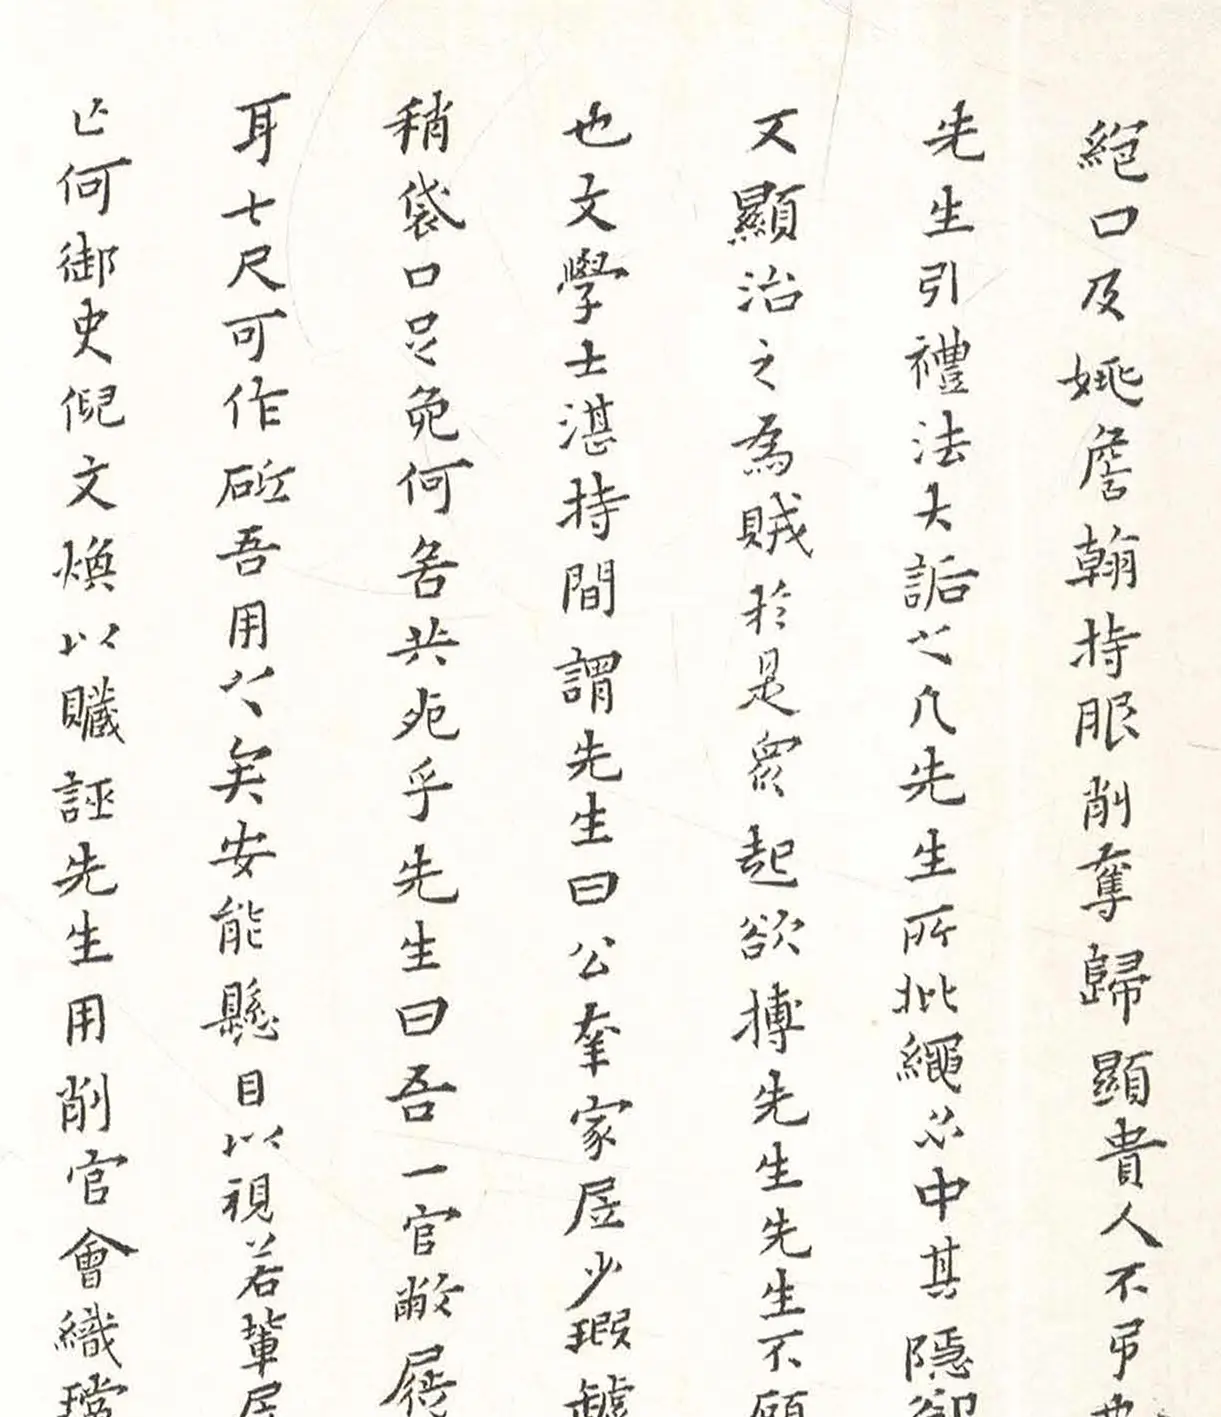 絕口及姚詹翰持服削奪歸顯貴人不弔
先生引禮法大詬之凡先生所批繩必中其隱卻
又顯治之為賊於是眾起欲搏先生先生不顧
也文學士湛持間謂先生曰公幸家居少瑕罅
稍袋口足免何苦共死乎先生曰吾一官敝屣
耳七尺可作吾用之矣安能懸目以視若輩居
亡何御史倪文煥以贓誣先生用削官會織璫